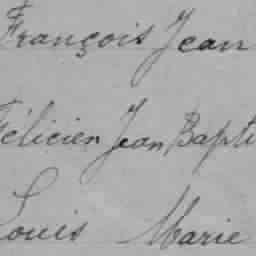 François Jean
Félicien Jean Bapti
Louis Marie